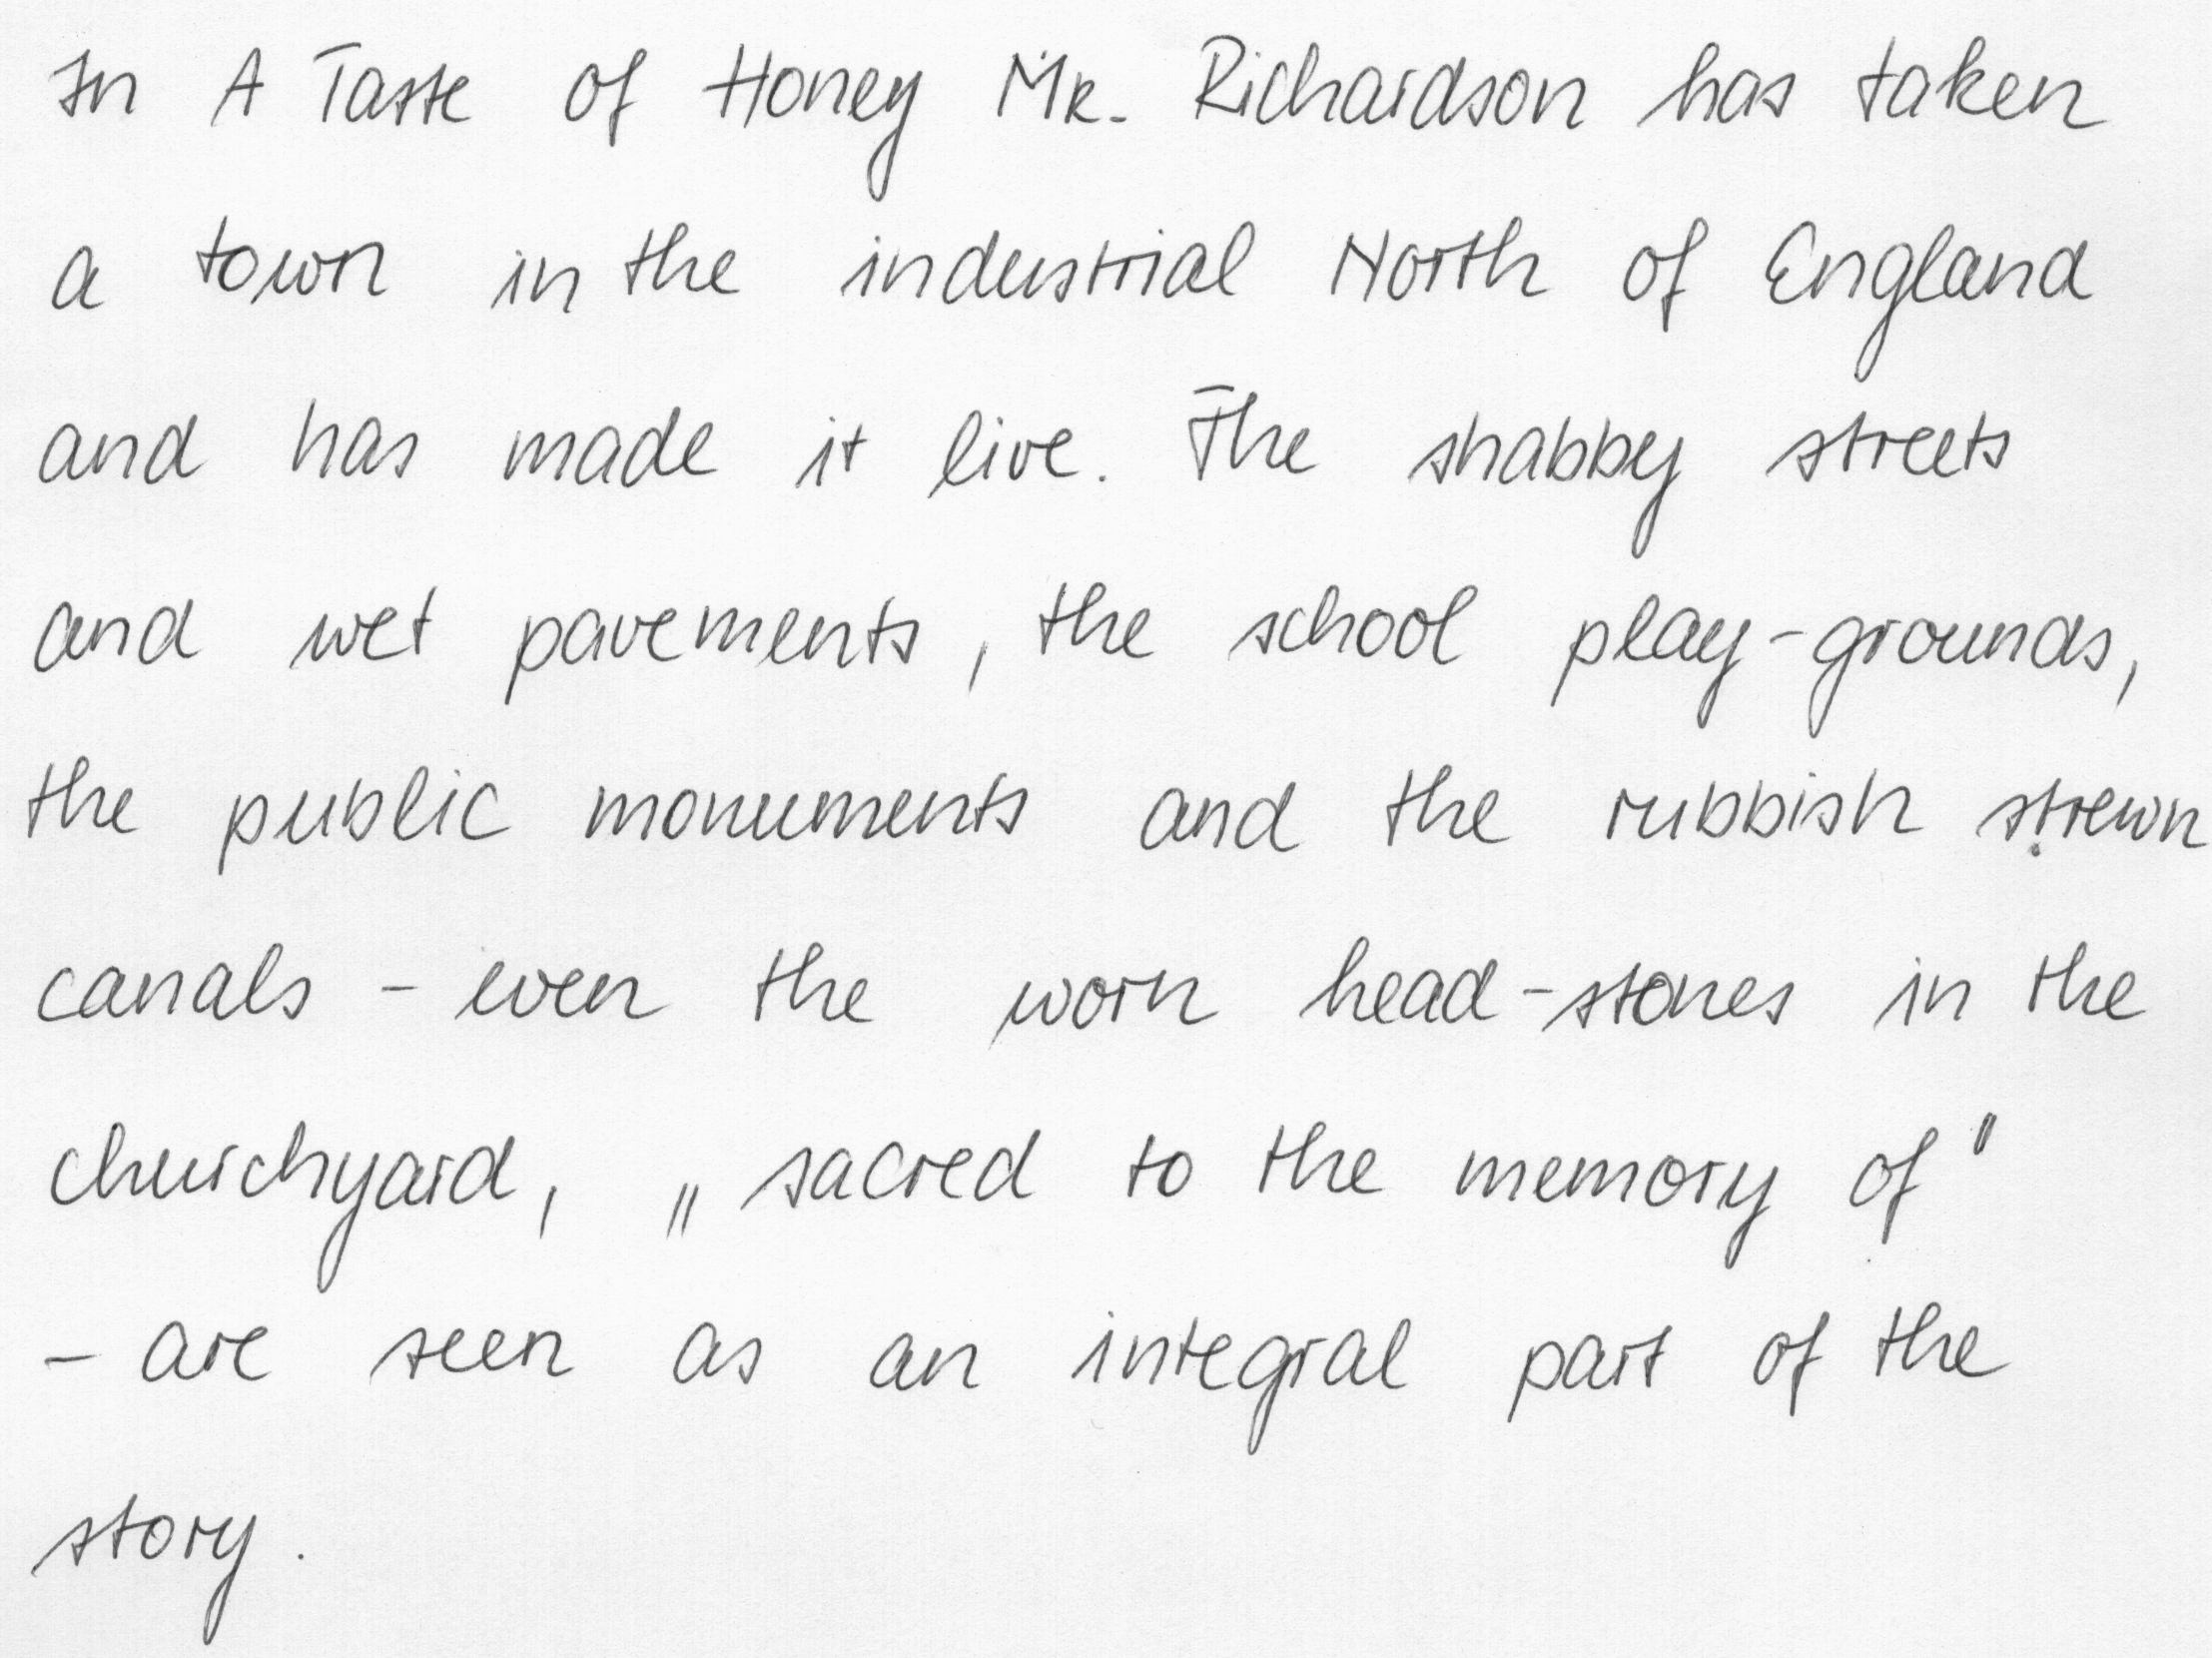 In A Taste of Honey Mr. Richardson has taken
a town in the industrial North of England
and has made it live. The shabby streets
and wet pavements, the school play-grounds,
the public monuments and the rubbish strewn
canals - even the worn head-stones in the
churchyard, „sacred to the memory of"
- are seen as an integral part of the
story.